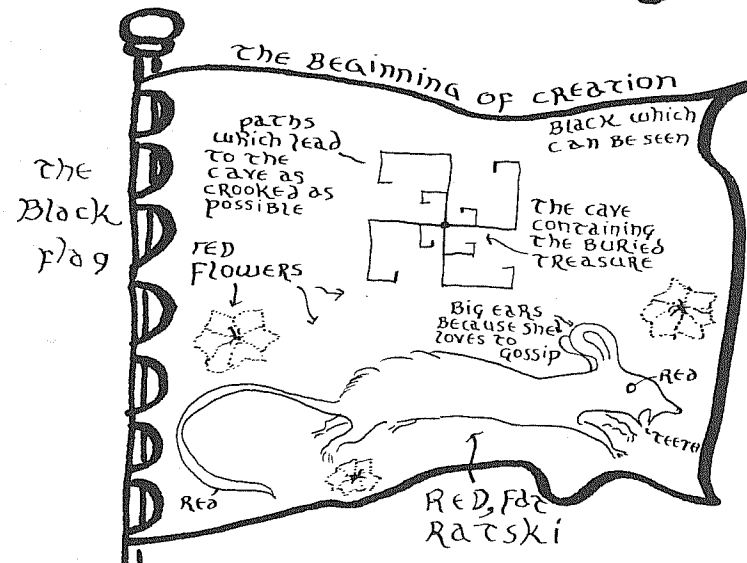 The Beginning of Creation
Black which
can be seen
paths
which lead
to the
cave as
crooked as
possible
The
Black
flag
The cave
containing
the buried
treasure
red
flowers
Big ears
because she
loves to
gossip
Red
Teeth
Red
Red, Fat
Ratski